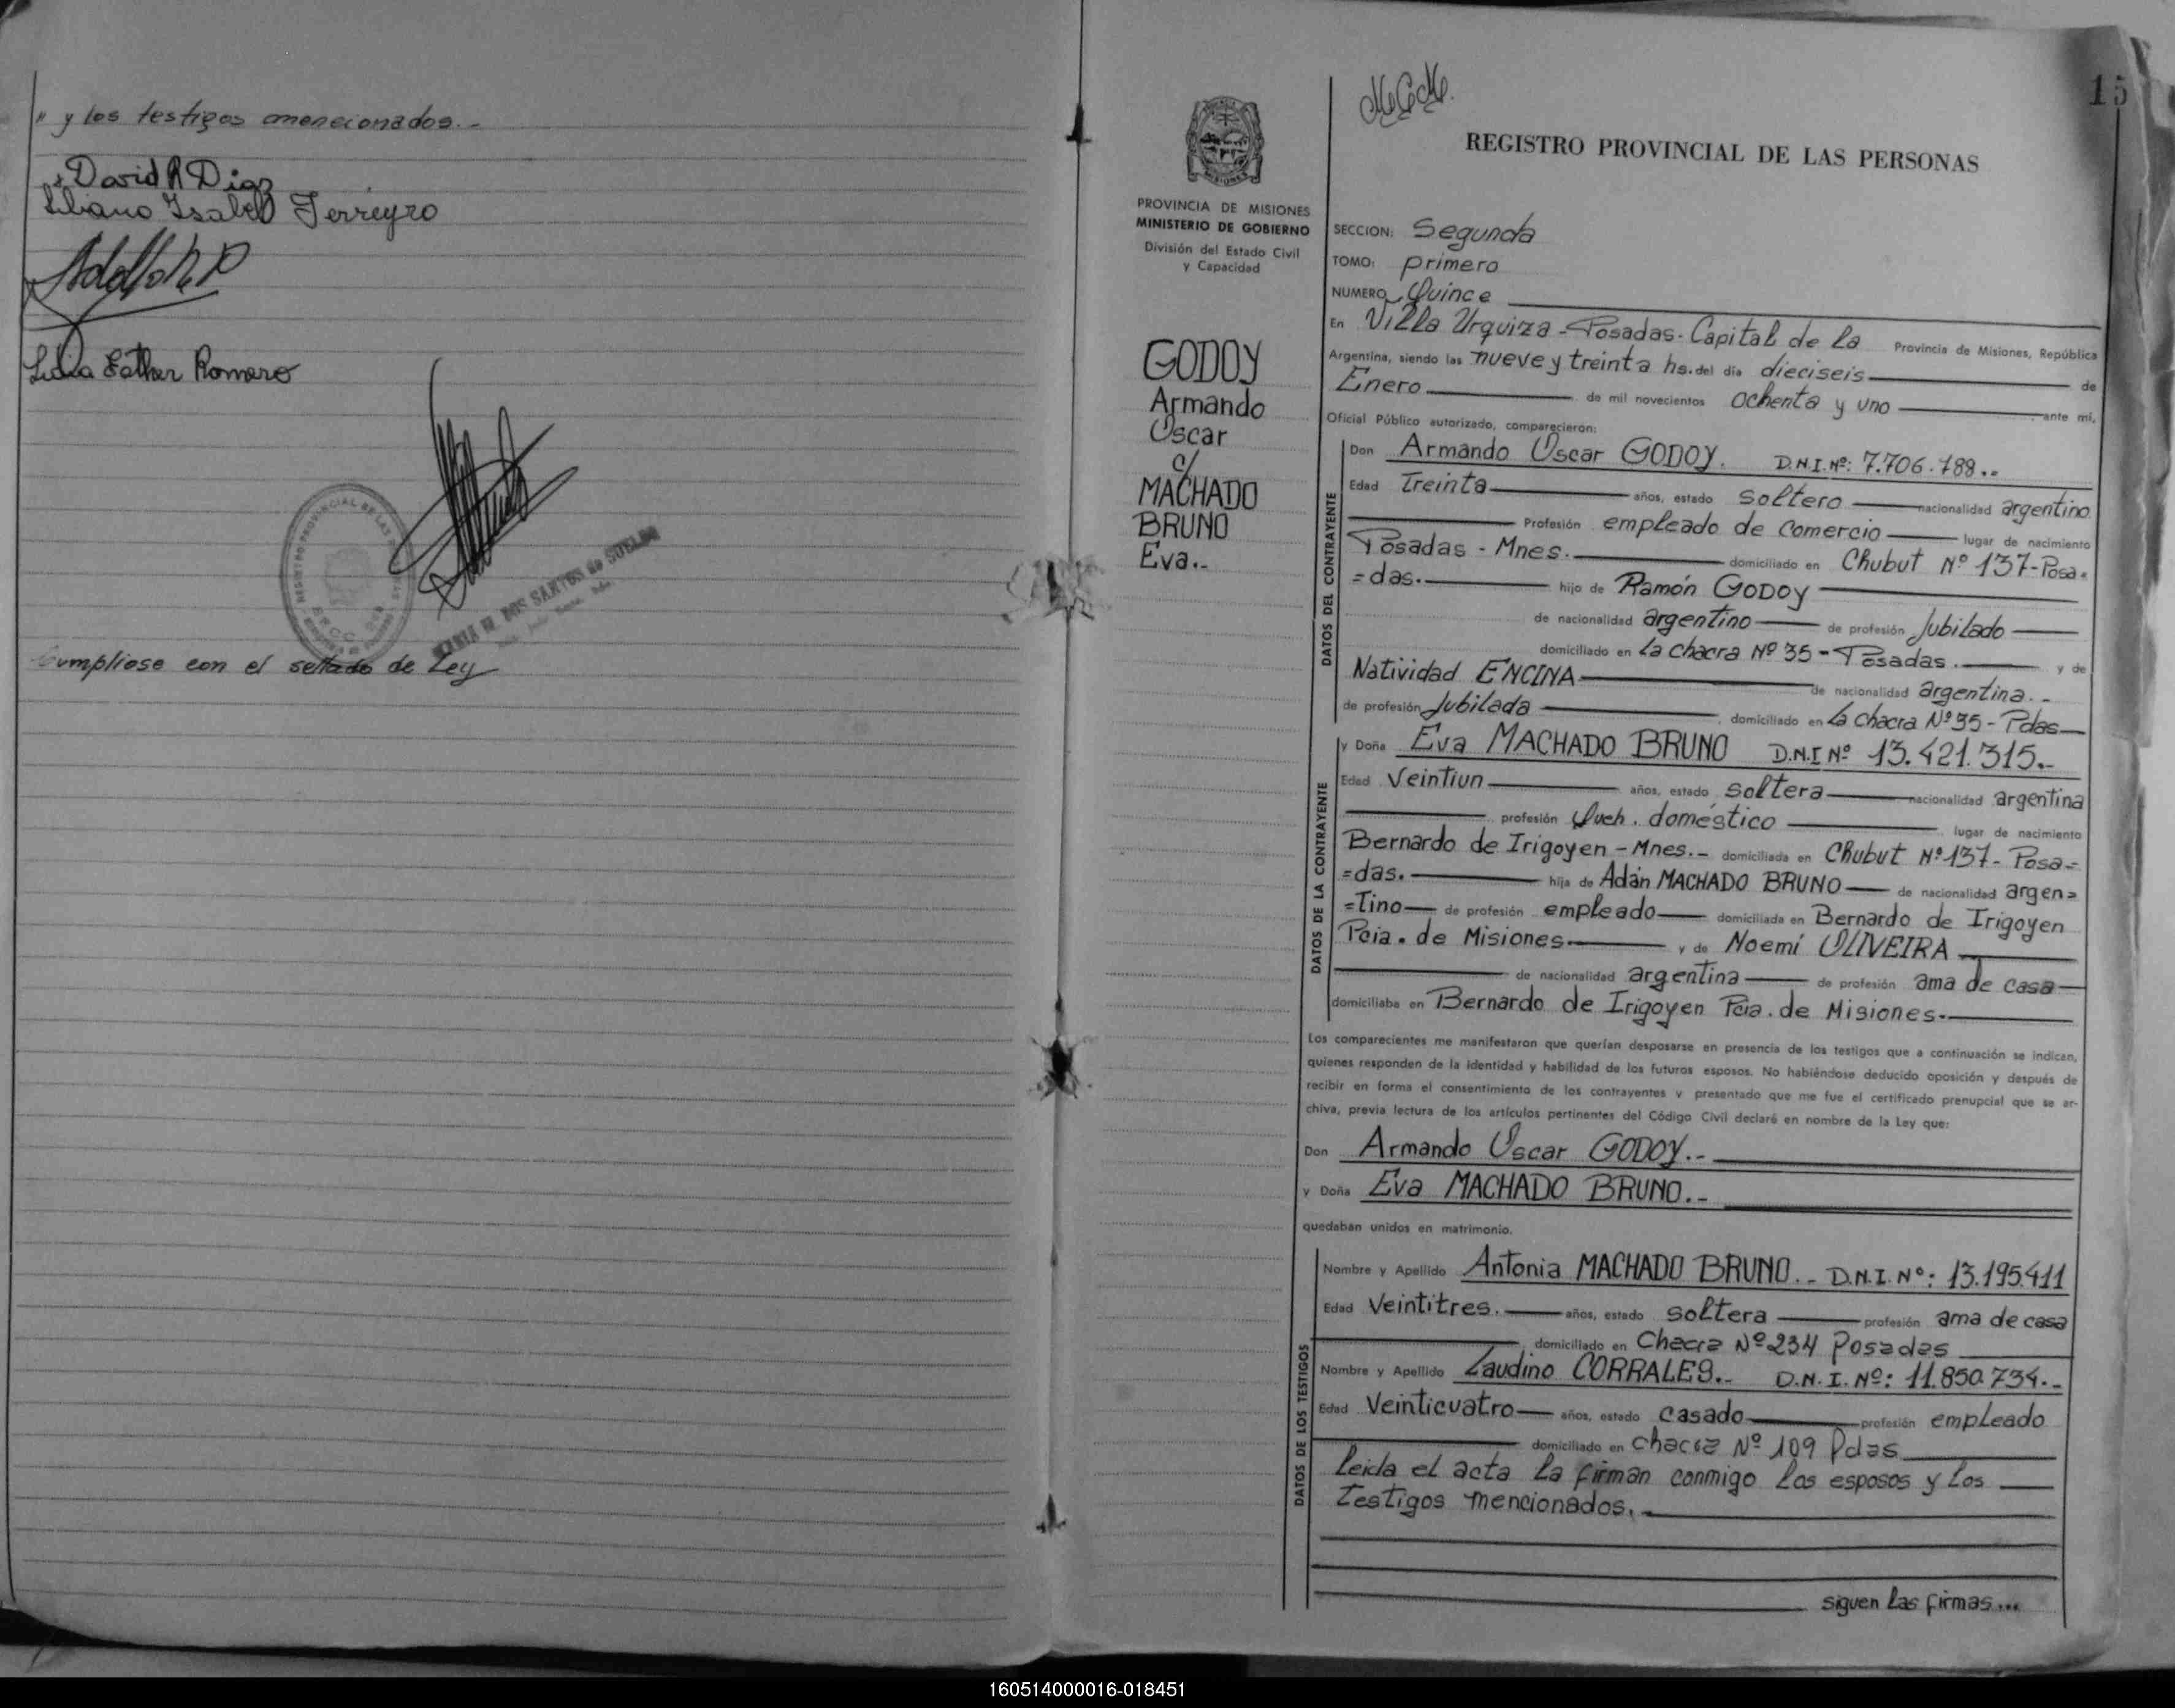 " y los testigos menecionados.-
David R Diaz
Liliana Isabel Ferreyro
Lidia Esther Romero
REGISTRO PROVINCIAL DE LAS
DOS SANTOS de
Cumpliose con el sellado de Ley
15
PROVINCIA DE MISIONES
MINISTERIO DE GOBIERNO
División del Estado Civil
y Capacidad
GODOY
Armando
Oscar
c/
MACHADO
BRUNO
Eva.-
REGISTRO PROVINCIAL DE LAS PERSONAS
SECCION: Segunda
TOMO: primero
NUMERO Quince
En Villa Urquiza - Posadas - Capital de la Provincia de Misiones, República
Argentina, siendo las nueve y treinta hs. del día dieciseis de
Enero de mil novecientos ochenta y uno ante mí,
Oficial Público autorizado, comparecieron:
DATOS DEL CONTRAYENTE
Don Armando Oscar GODOY. D.N.I.Nº: 7.706.788.-
Edad Treinta años, estado soltero nacionalidad argentino
Profesión empleado de comercio lugar de nacimiento
Posadas - Mnes. domiciliado en Chubut Nº 137-Posa=
=das. hijo de Ramón GODOY
de nacionalidad argentino de profesión Jubilado
domiciliado en La chacra Nº 35 - Posadas. y de
Natividad ENCINA de nacionalidad argentina.-
de profesión Jubilada domiciliado en La chacra Nº 35 - Pdas
DATOS DE LA CONTRAYENTE
y Doña Eva MACHADO BRUNO D.N.I Nº 13.421.315.-
Edad Veintiun años, estado soltera nacionalidad argentina
profesión Queh. doméstico lugar de nacimiento
Bernardo de Irigoyen - Mnes.- domiciliada en Chubut Nº 137 - Posa=
=das. hija de Adán MACHADO BRUNO de nacionalidad argen=
=tino de profesión empleado domiciliada en Bernardo de Irigoyen
Pcia. de Misiones y de Noemí OLIVEIRA
de nacionalidad argentina de profesión ama de casa
domiciliaba en Bernardo de Irigoyen Pcia. de Misiones.
Los comparecientes me manifestaron que querían desposarse en presencia de los testigos que a continuación se indican,
quienes responden de la identidad y habilidad de los futuros esposos. No habiéndose deducido oposición y después de
recibir en forma el consentimiento de los contrayentes y presentado que me fue el certificado prenupcial que se ar-
chiva, previa lectura de los artículos pertinentes del Código Civil declaré en nombre de la Ley que:
Don Armando Oscar GODOY.-
y Doña Eva MACHADO BRUNO.-
quedaban unidos en matrimonio.
DATOS DE LOS TESTIGOS
Nombre y Apellido Antonia MACHADO BRUNO.- D.N.I. Nº: 13.195.411
Edad Veintitres. años, estado soltera profesión ama de casa
domiciliado en Chacra Nº 234 Posadas
Nombre y Apellido Laudino CORRALES.- D.N.I. Nº: 11.850.734.-
Edad Veinticuatro años, estado casado profesión empleado
domiciliado en chacra Nº 109 Pdas
Leida el acta la firman conmigo los esposos y los
testigos mencionados.
siguen las firmas...
160514000016-018451